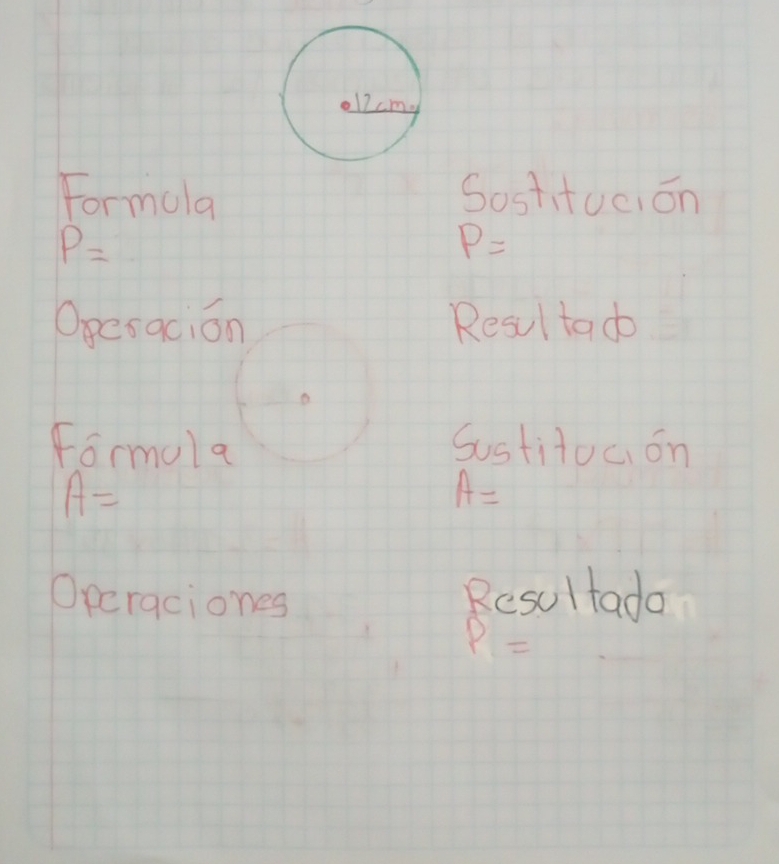 12cm.
Formula Sostitución
P= P=
Operación Resultado
Fórmula Sustitución
A= A=
Operaciones Resultado
P =